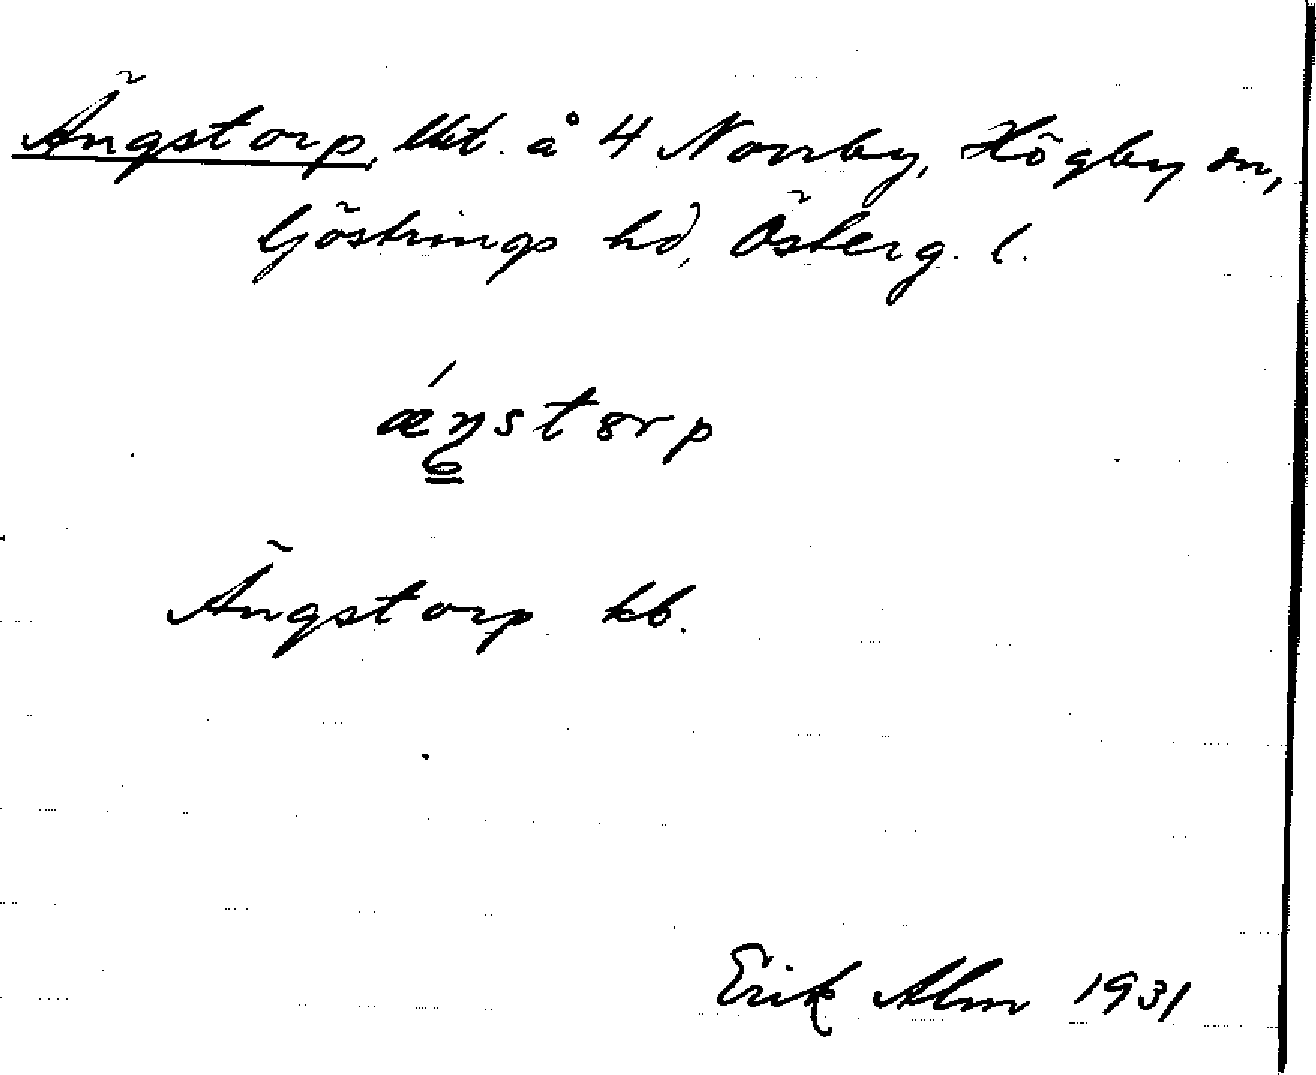 Ängstorp, lht. å 4 Norrby, Högby sn,
Göstrings hd, Österg. l.
ǽŋstorp
Ängstorp kb.
Erik Alm 1931